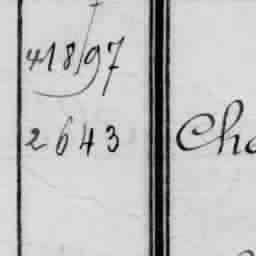 418/97
2643 Cha